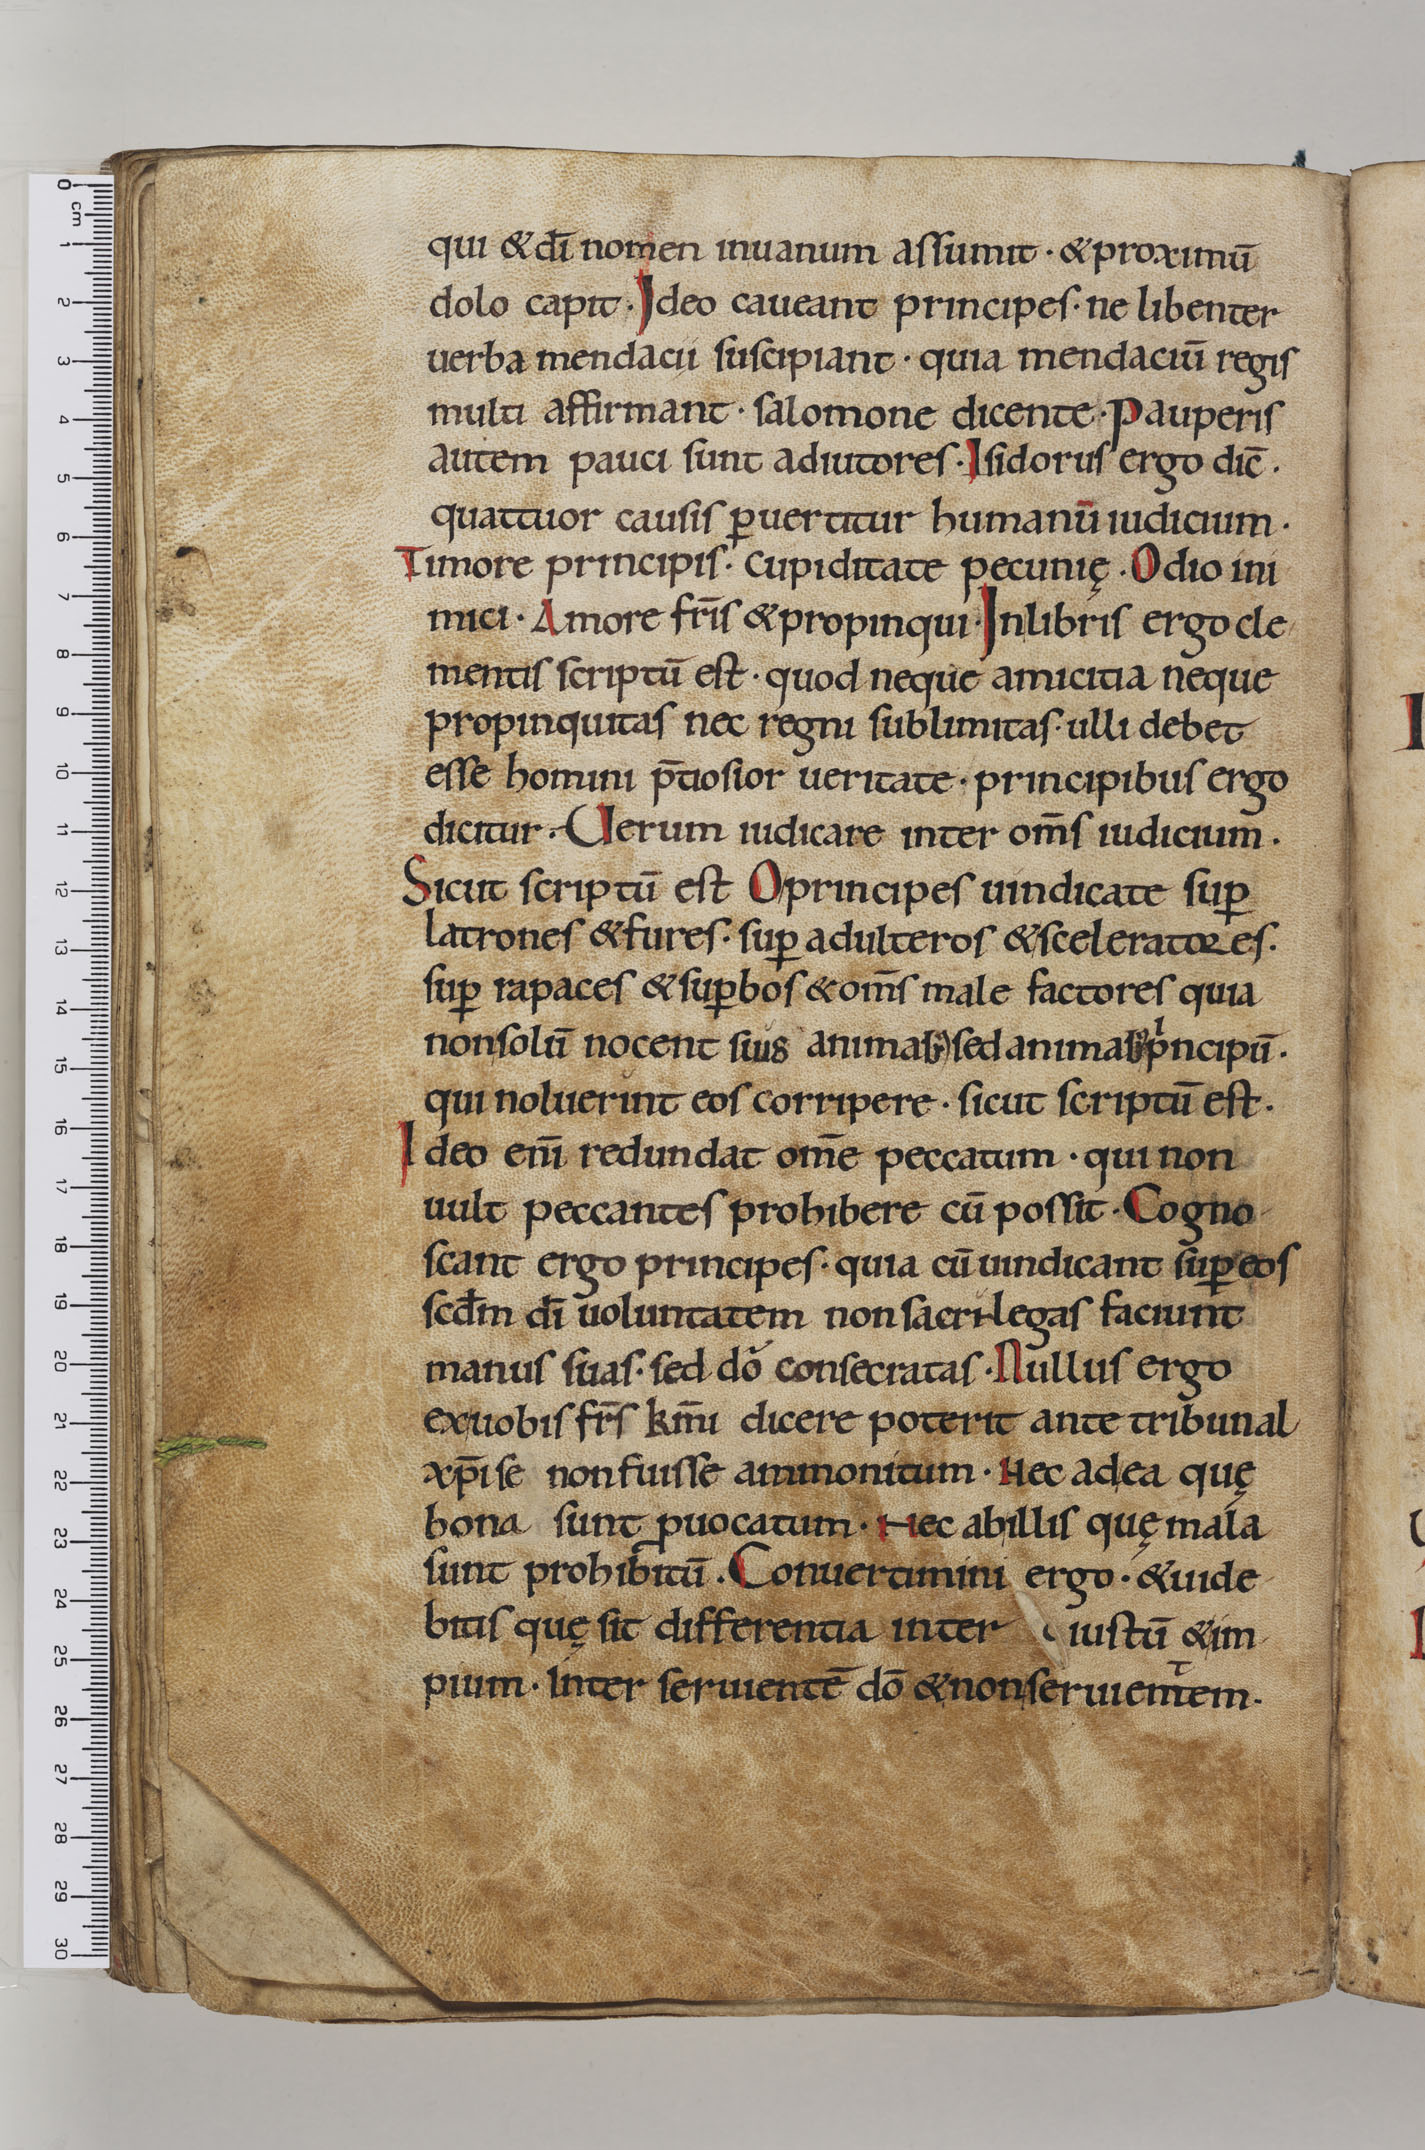 qui & dī nomen inuanum assumit · & proximū
dolo capit · Ideo caueant principes · ne libenter
uerba mendacii suscipiant · quia mendaciū regis
multi affirmant · salomone dicente · Pauperis
autem pauci sunt adiutores · Isidorus ergo dic̄ ·
quattuor causis ꝑuertitur humanū iudicium ·
Timore principis · cupiditate pecunię · Odio ini
mici · Amore fr̄is & propinqui · Inlibris ergo cle
mentis scriptū est · quod neque amicitia neque
propinquitas nec regni sublimitas · ulli debet
esse homini p̄tiosior ueritate · principibus ergo
dicitur · Uerum iudicare inter om̄s iudicium ·
Sicut scriptū est O principes uindicate suꝑ
latrones & fures · suꝑ adulteros & sceleratores ·
suꝑ rapaces & suꝑbos & om̄s male factores quia
nonsolū nocent suis animab; sed animab; pⁱncipū ·
qui noluerint eos corripere · sicut scriptū est ·
Ideo enī redundat om̄e peccatum · qui non
uult peccantes prohibere cū possit · Cogno
scant ergo principes · quia cū uindicant suꝑ eos
scd̄m dī uoluntatem non sacrilegas faciunt
manus suas · sed dō consecratas · Nullus ergo
exuobis fr̄s km̄i dicere poterit ante tribunal
xp̄i se non fuisse ammonitum · Nec adea quę
bona sunt ꝓuocatum · Nec abillis quę mala
sunt prohibitū · Conuertimini ergo · & uide
bitis quę sit differentia inter iustū & im
pium · Inter seruientē dō & nonseruientem ·
0
cm
1
2
3
4
5
6
7
8
9
10
11
12
13
14
15
16
17
18
19
20
21
22
23
24
25
26
27
28
29
30